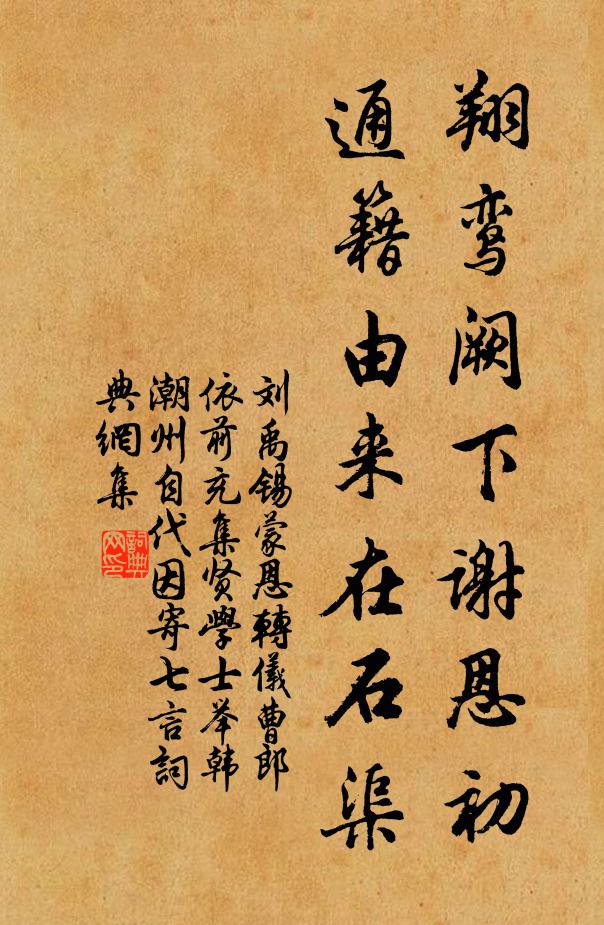 翔鸾阙下谢恩初
通籍由来在石渠
刘禹锡蒙恩轉儀曹郎
依前充集贤學士举韩
潮州自代因寄七言詞
典網集
詞典網印